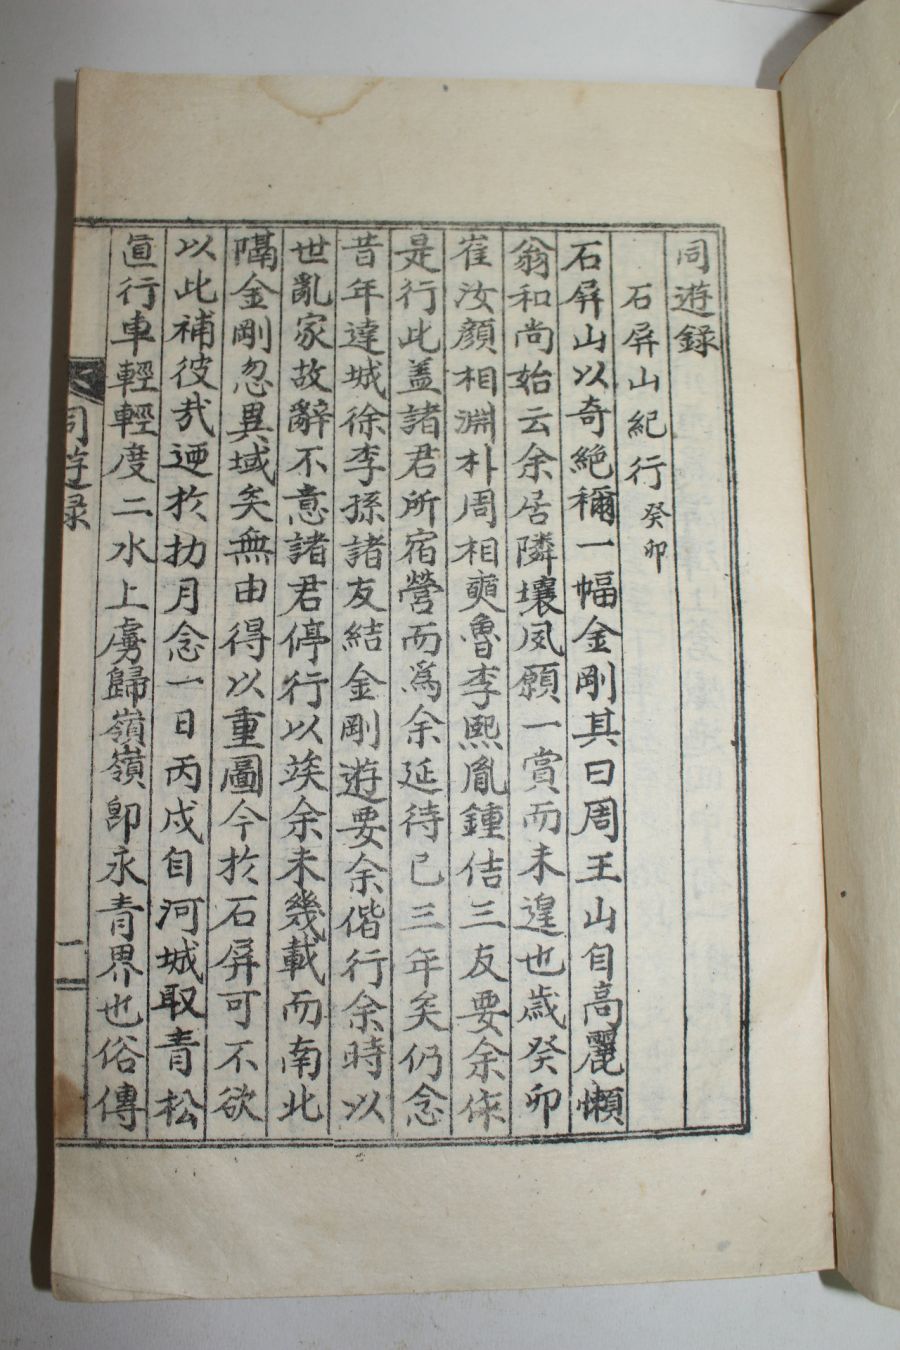 同遊錄
石屛山紀行 癸卯
石屛山以奇絶稱一幅金剛其曰周王山自高麗懶
翁和尚始云余居隣壤夙願一賞而未遑也歲癸卯
崔汝顔相淵朴周相奭魯李熙胤鍾佶三友要余作
是行此盖諸君所宿營而爲余延待已三年矣仍念
昔年達城徐李孫諸友結金剛遊要余偕行余時以
世亂家故辭不意諸君停行以竢余未幾載而南北
隔金剛忽異域矣無由得以重圖今於石屛可不欲
以此補彼哉迺於扐月念一日丙戌自河城取靑松
直行車輕輕度二水上虜歸嶺嶺卽永靑界也俗傳
同遊錄
二